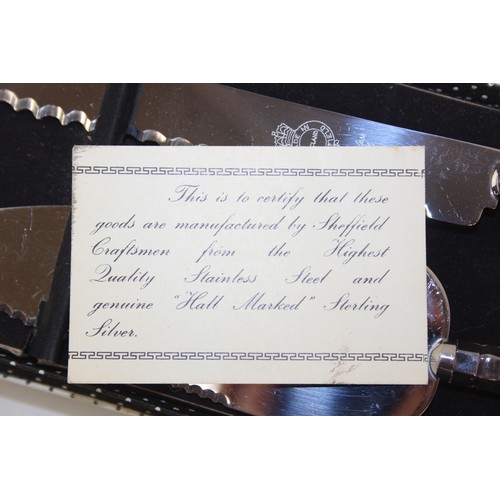 This is to certify that these
goods are manufactured by Sheffield
Craftsmen from the Highest
Quality Stainless Steel and
genuine "Hall Marked" Sterling
Silver.